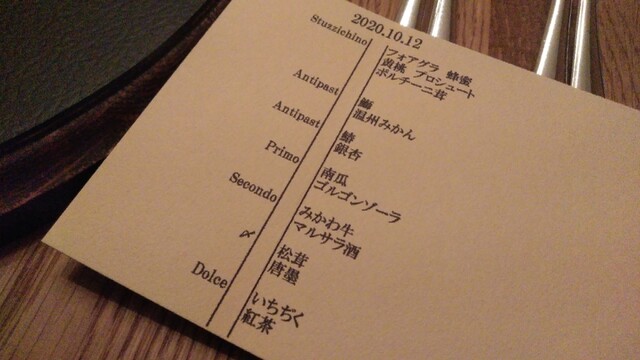 2020.10.12
Stuzzichino
フォアグラ 蜂蜜
黄桃 プロシュート
ポルチーニ茸
Antipast
鰤
温州みかん
Antipast
鰆
銀杏
Primo
南瓜
ゴルゴンゾーラ
Secondo
みかわ牛
マルサラ酒
〆
松茸
唐墨
Dolce
いちぢく
紅茶